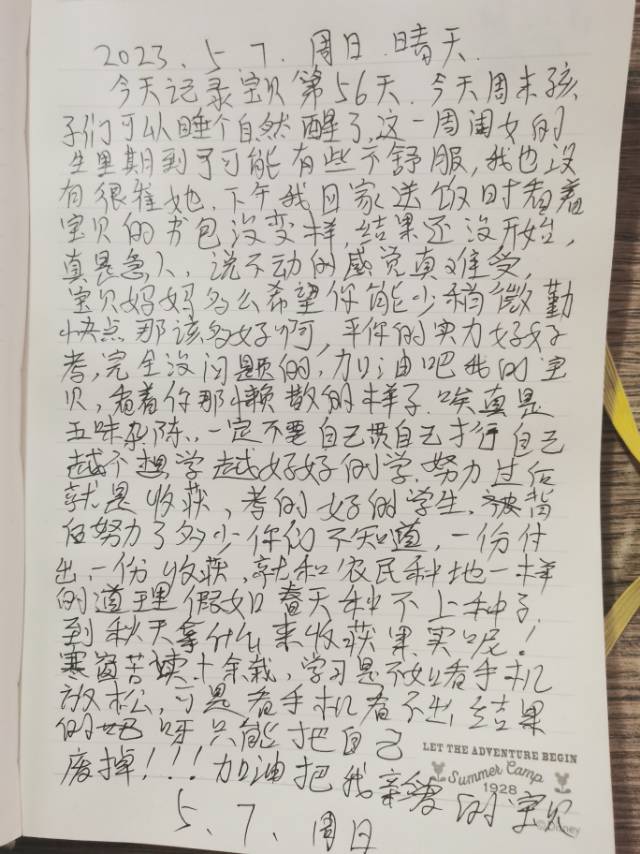 2023.5.7.周日.晴天.
今天记录宝贝第56天.今天周末孩
子们可以睡个自然醒了,这一周闺女的
生里期到了可能有些不舒服,我也没
有很推她.下午我回家送饭时看着
宝贝的书包没变样,结果还没开始,
真是急人,说不动的感觉真难受,
宝贝妈妈多么希望你能少稍微勤
快点那该多好啊,平你的实力好好
考,完全没问题的,加油吧我的宝
贝,看着你那懒散的样子.唉真是
五味杂陈..一定不要自己惯自己才行自己
越不想学越好好的学.努力过后
就是收获,考的好的学生.被背
后努力了多少你们不知道,一份付
出,一份收获,就和农民种地一样
的道理假如春天种不上种子
到秋天拿什么来收获果实呢!
寒窗苦读十余载,学习是不如看手机
放松,可是看手机看不出结果
的妞呀只能把自己
废掉!!!加油把我亲爱的宝贝
LET THE ADVENTURE BEGIN
Summer Camp
1928
©Disney
5.7.周日